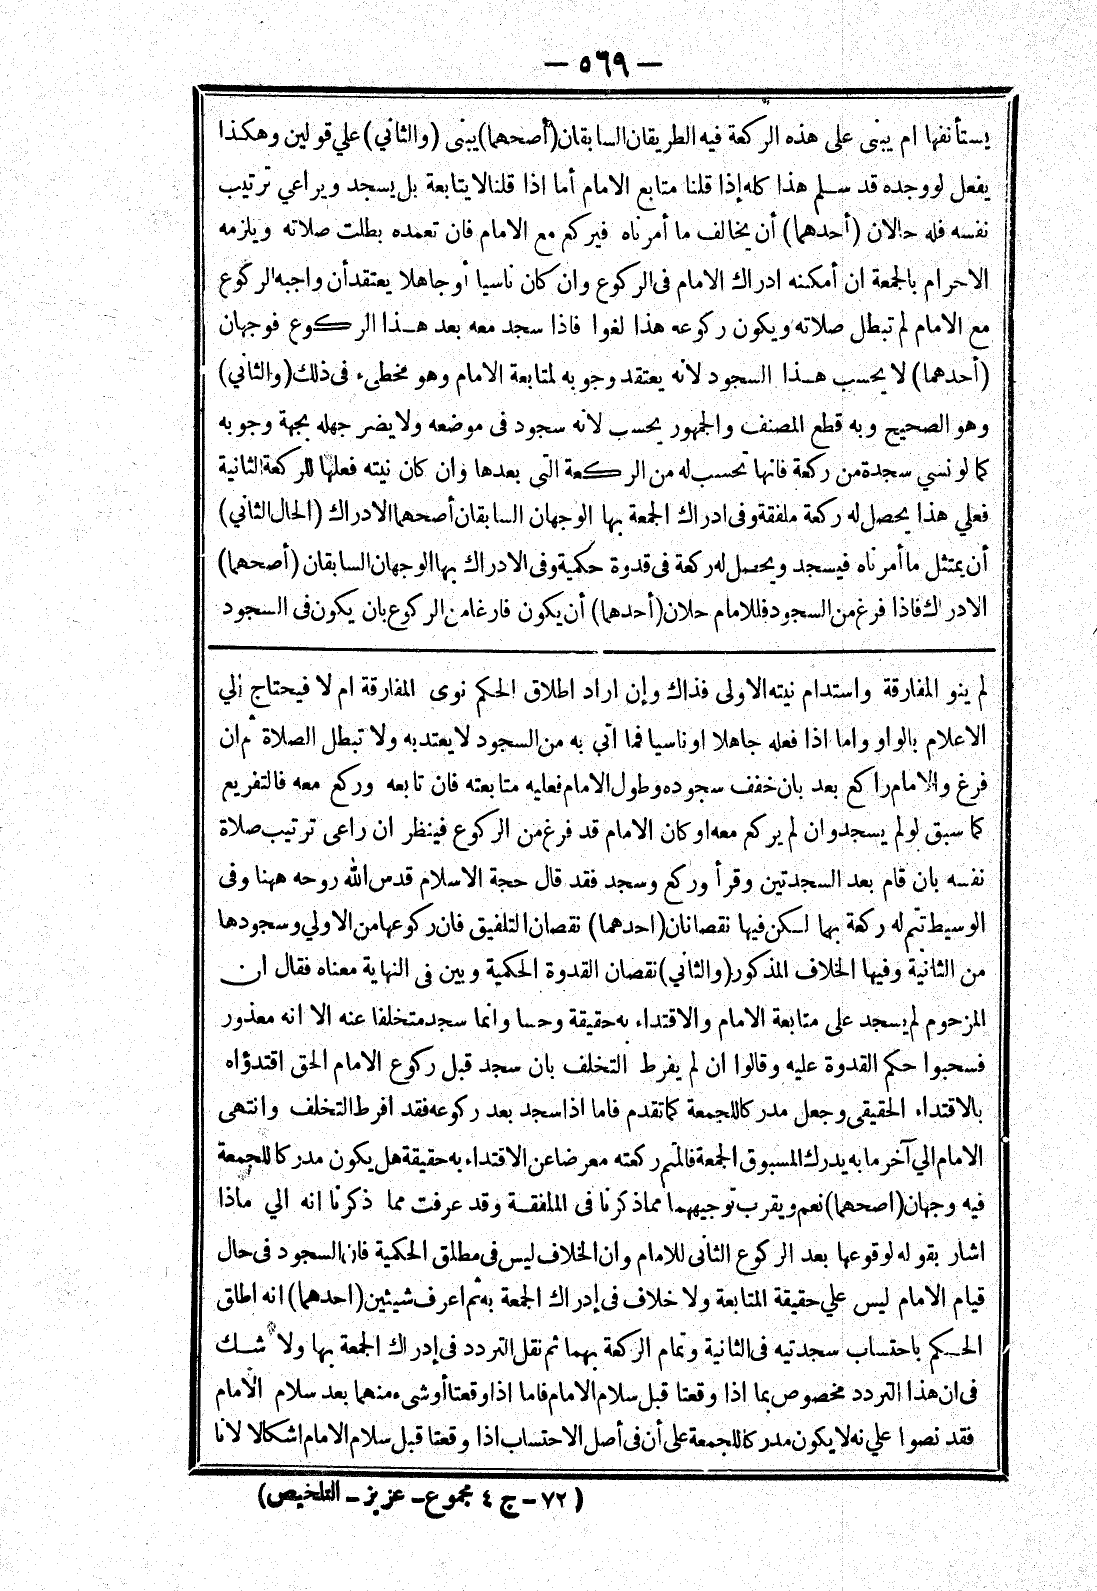 — ٥٦٩ —
يستأنفها ام يبنى على هذه الركعة فيه الطريقان السابقان (أصحهما) يبنى (والثاني) علي قولين وهكذا
يفعل لو وجده قد سلم هذا كله إذا قلنا متابع الامام أما اذا قلنا لا يتابعه بل يسجد ويراعي ترتيب
نفسه فله حالان (أحدهما) أن يخالف ما أمرناه فيركع مع الامام فان تعمده بطلت صلاته ويلزمه
الاحرام بالجمعة ان أمكنه ادراك الامام فى الركوع وان كان ناسيا أو جاهلا يعتقد أن واجبه الركوع
مع الامام لم تبطل صلاته ويكون ركوعه هذا لغوا فاذا سجد معه بعد هذا الركوع فوجهان
(أحدهما) لا يحسب هذا السجود لانه يعتقد وجوبه لمتابعة الامام وهو مخطىء فى ذلك (والثاني)
وهو الصحيح وبه قطع المصنف والجمهور يحسب لانه سجود فى موضعه ولا يضر جهله بجهة وجوبه
كما لو نسي سجدة من ركعة فانها تحسب له من الركعة التى بعدها وان كان نيته فعلها للركعة الثانية
فعلي هذا يحصل له ركعة ملفقة وفى ادراك الجمعة بها الوجهان السابقان أصحهما الادراك (الحال الثاني)
أن يمتثل ما أمرناه فيسجد ويحصل له ركعة فى قدوة حكمية وفى الادراك بها الوجهان السابقان (أصحهما)
الادراك فاذا فرغ من السجود فللامام حلان (أحدهما) أن يكون فارغا من الركوع بان يكون فى السجود
لم ينو المفارقة واستدام نيته الاولى فذاك وإن اراد اطلاق الحكم نوى المفارقة ام لا فيحتاج إلي
الاعلام بالواو واما اذا فعله جاهلا او ناسيا فما اتي به من السجود لا يعتد به ولا تبطل الصلاة ثم ان
فرغ والامام راكع بعد بان خفف سجوده وطول الامام فعليه متابعته فان تابعه وركع معه فالتفريع
كما سبق لو لم يسجد وان لم يركع معه او كان الامام قد فرغ من الركوع فينظر ان راعى ترتيب صلاة
نفسه بان قام بعد السجدتين وقرأ وركع وسجد فقد قال حجة الاسلام قدس الله روحه ههنا وفى
الوسيط تتم له ركعة بهما لكن فيها نقصانان (احدهما) نقصان التلفيق فان ركوعها من الاولي وسجودها
من الثانية وفيها الخلاف المذكور (والثاني) نقصان القدوة الحكمية وبين فى النهاية معناه فقال ان
المزحوم لم يسجد على متابعة الامام والاقتداء به حقيقة وحسا وانما سجد متخلفا عنه الا انه معذور
فسحبوا حكم القدوة عليه وقالوا ان لم يفرط التخلف بان سجد قبل ركوع الامام الحق اقتدؤاه
بالاقتداء الحقيقى وجعل مدركا للجمعة كما تقدم فاما اذا سجد بعد ركوعه فقد افرط التخلف وانتهى
الامام الي آخر ما به يدرك المسبوق الجمعة فالمتم ركعته معرضا عن الاقتداء به حقيقة هل يكون مدركا للجمعة
فيه وجهان (اصحهما) نعم ويقرب توجيههما مما ذكرنا فى الملفقة وقد عرفت مما ذكرنا انه الي ماذا
اشار بقوله لوقوعها بعد الركوع الثانى للامام وان الخلاف ليس فى مطلق الحكمية فان السجود فى حال
قيام الامام ليس علي حقيقة المتابعة ولا خلاف فى إدراك الجمعة به ثم اعرف شيئين (احدهما) انه اطلق
الحكم باحتساب سجدتيه فى الثانية وتمام الركعة بهما ثم نقل التردد فى إدراك الجمعة بها ولا شك
فى ان هذا التردد مخصوص بما اذا وقعتا قبل سلام الامام فاما اذا وقعتا أو شىء منهما بعد سلام الامام
فقد نصوا علي نه لا يكون مدركا للجمعة على أن فى أصل الاحتساب اذا وقعتا قبل سلام الامام اشكالا لانا
(٧٢ - ج ٤ مجموع - عزيز - التلخيص)